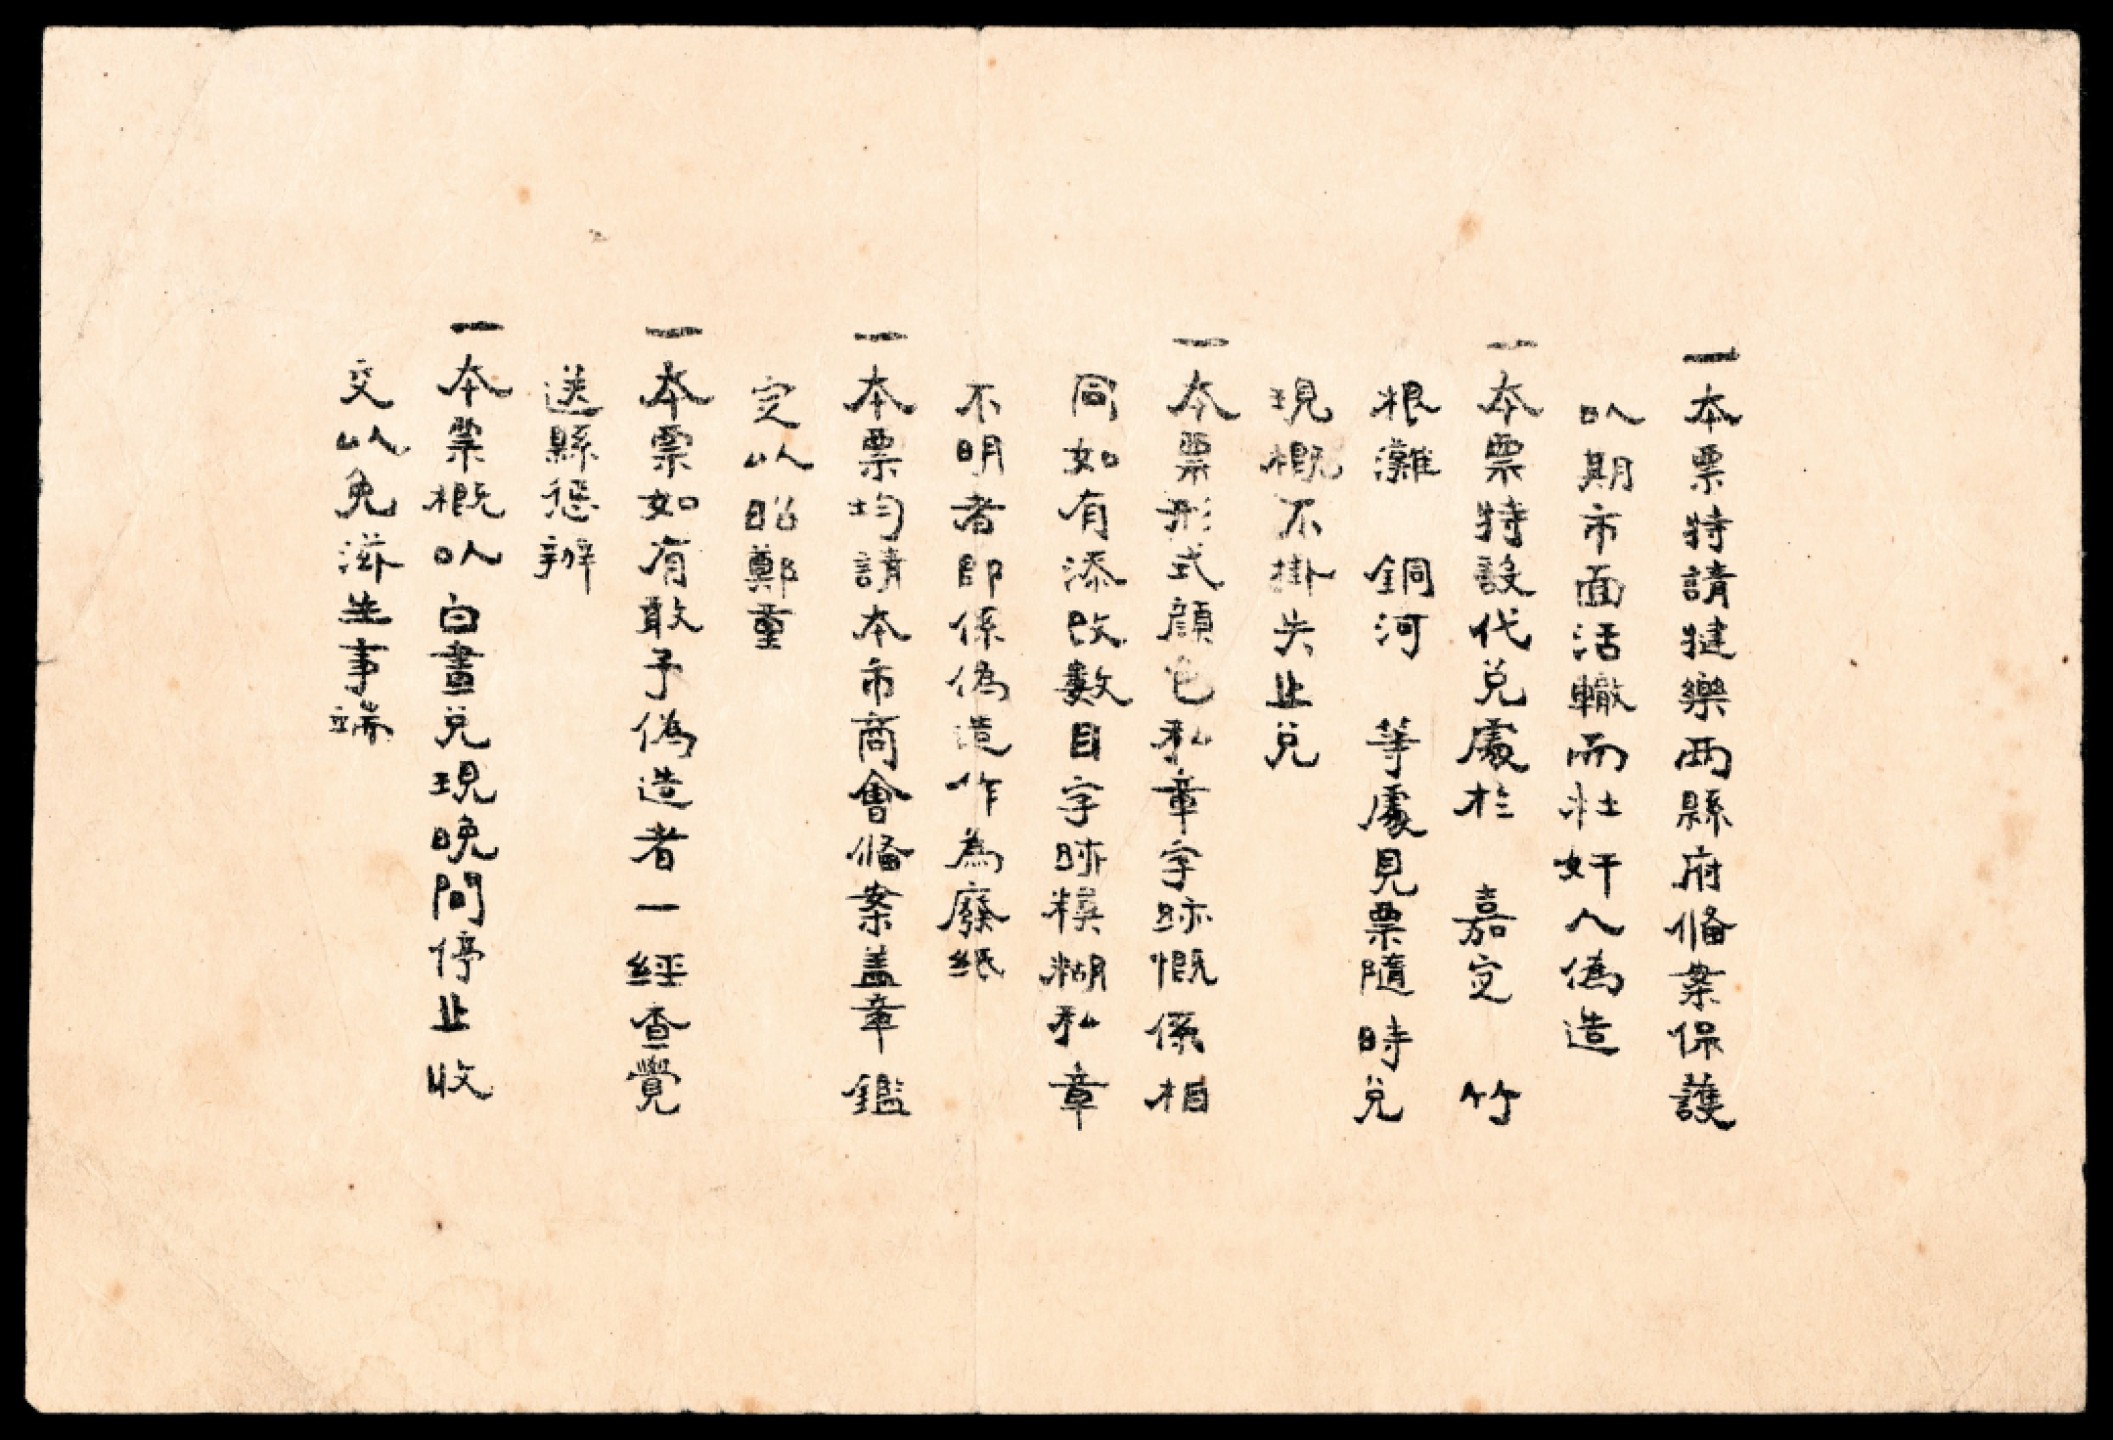 一本票特請犍樂两縣府俻案保護
以期市面活轍而杜奸人偽造
一本票特設代兑處於 嘉定 竹
根灘 銅河 等處見票隨時兑
現概不掛失止兑
一本票形式顔色私章字跡慨係相
同如有添改數目字跡糢糊私章
不明者即係偽造作為廢紙
一本票均請本市商會俻案盖章鑑
定以昭鄭重
一本票如有敢予偽造者一經查覺
送縣惩辦
一本票概以白晝兑現晚間停止收
交以免滋生事端